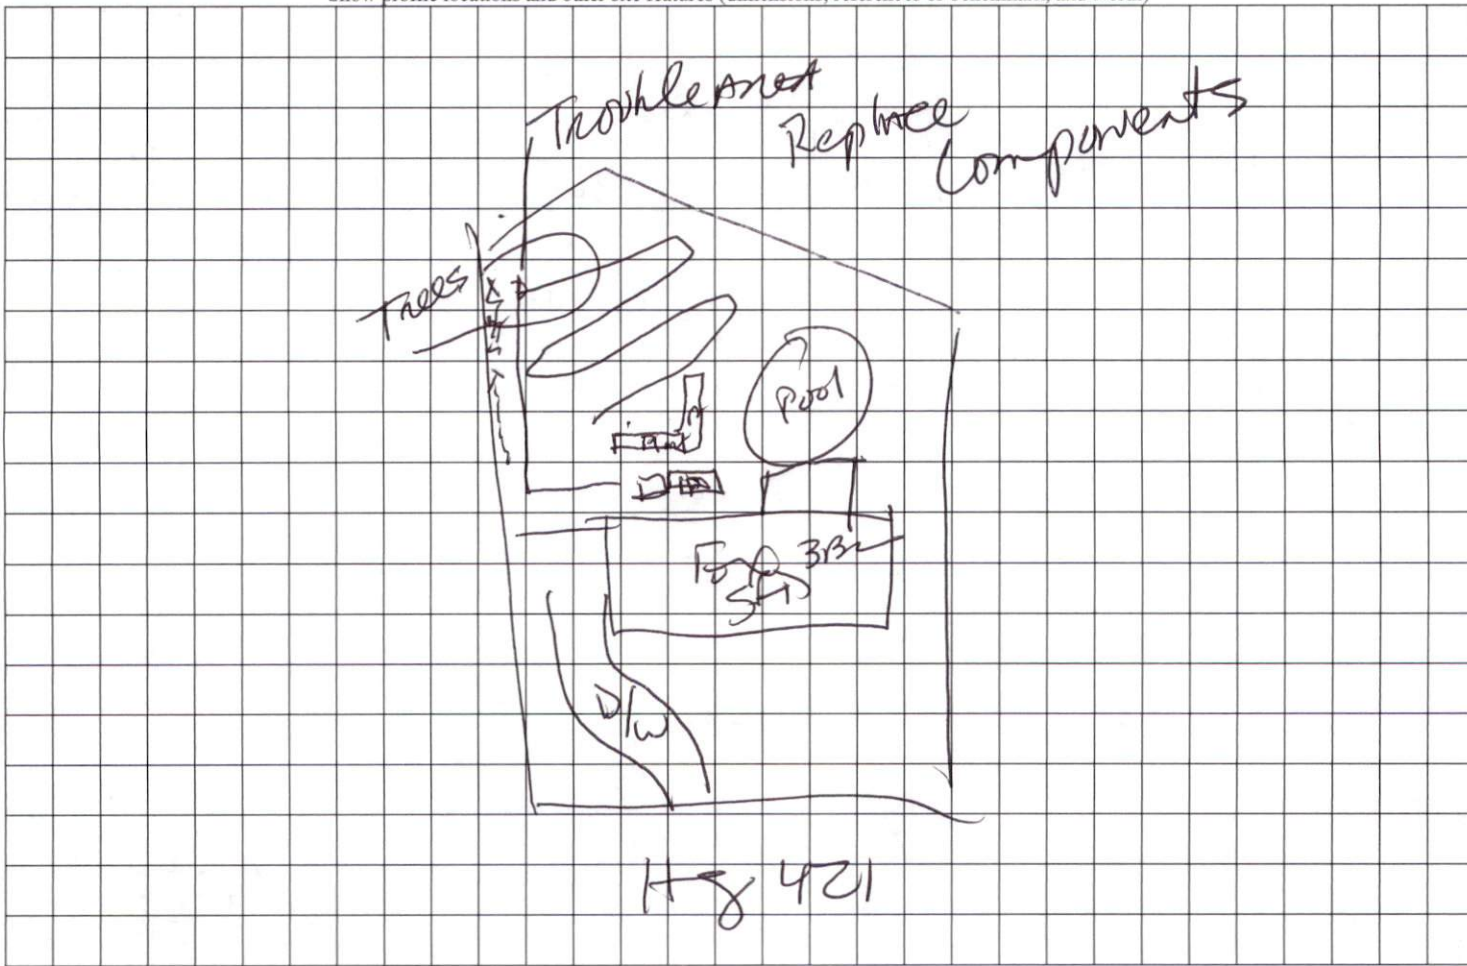 Trouble Area
Replace
Components
Trees
Pool
3BR
D/W
Hwy 421